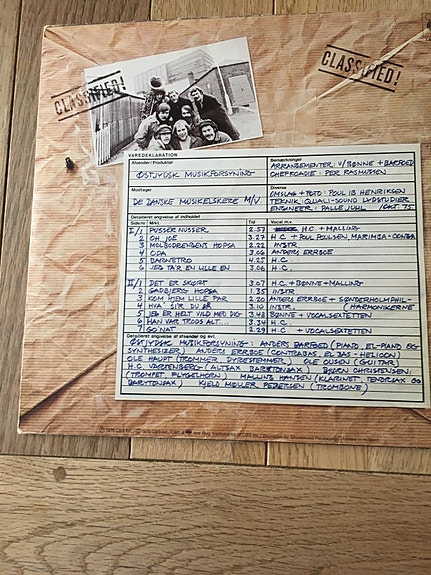 CLASSIFIED!
CLASSIFIED!
VAREDEKLARATION
Afsender/Producer
ØSTJYDSK MUSIKFORSYNING
Bemærkninger
ARRANGEMENTER V/BØNNE + BARFOED
CHEFKOADIE: PER RASMUSSEN
Modtager
DE DANSKE MUSIKELSKERE M/V.
Diverse
OMSLAG + FOTO: POUL IB HENRIKSEN
TEKNIK: QUALI-SOUND LYDSTUDIER
ENGINEER: PALLE JUHL /OKT. 75.
Detailleret angivelse af indholdet
Side nr. Mrkt. Tid Vocal m.v.
I/1 PUSSER NUSSER 2.57 H.C + MALLING
2 OH JOE 3.27 H.C + POUL POULSEN, MARIMBA + CONGA
3 MOLBODRENGENS HOPSA 2.22 INSTR
4 OPA 3.06 ANDERS ERRBOE
5 BARNETRO 4.25 H.C.
6 JEG TAR EN LILLE EN 3.06 H.C.
II/1 DET ER SKORT 3.07 H.C + BØNNE + MALLING
2 GADBJERG HOPSA 1.35 INSTR
3 KOM HJEM LILLE FAR 2.20 ANDERS ERRBOE + SØNDERHOLM PHIL-
4 HVA' SIR DU SÅ 3.10 INSTR. (HARMONIKERNE
5 JEG ER HELT VILD MED DIG 3.48 BØNNE + VOCALSEXTETTEN
6 HAN VAR TRODS ALT... 3.34 H.C.
7 GO'NAT 2.29 H.C. + VOCALSEXTETTEN
Detailleret angivelse af afsender og evt.
ØSTJYDSK MUSIKFORSYNING: ANDERS BARFOED (PIANO, EL-PIANO OG
SYNTHESIZER) ANDERS ERRBOE (CONTRABAS, EL BAS - HELICON)
OLE HAUPT (TROMMER, DYBESTEMMER) OLE OLSEN (GUITAR)
H.C. VARTENBERG - (ALTSAX BARYTONSAX) BJØRN CHRISTENSEN:
(TROMPET, FLYGELHORN) MALLING HANSEN (KLARINET TENORSAX OG
BARYTONSAX) KJELD MØLLER PEDERSEN (TROMBONE)